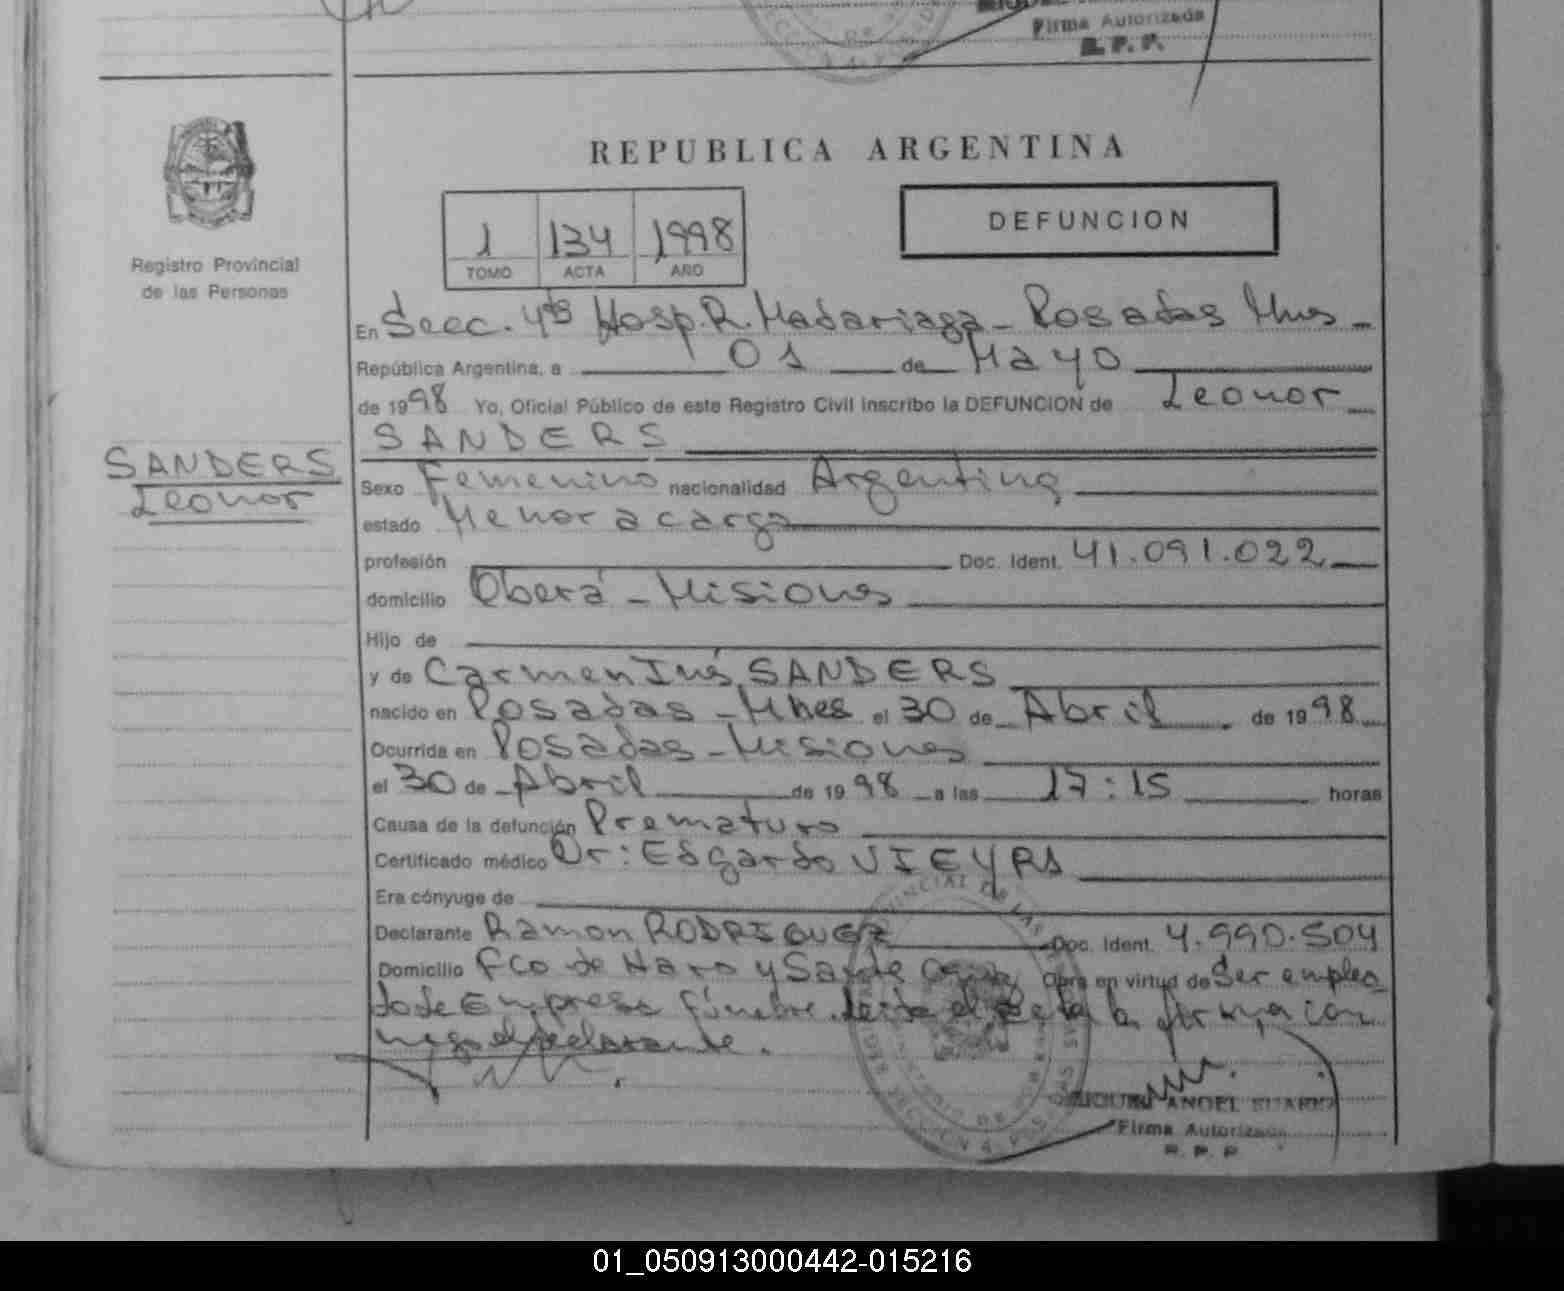 Firma Autorizada
R. P. P.
REPUBLICA ARGENTINA
1 134 1998
TOMO ACTA AÑO
DEFUNCION
Registro Provincial
de las Personas
En Secc. 4ta Hosp. R. Madariaga - Posadas Mnes
República Argentina, a 01 de Mayo
de 1998 Yo, Oficial Público de este Registro Civil inscribo la DEFUNCION de Leonor
SANDERS
SANDERS
Leonor
Sexo Femenino nacionalidad Argentina
estado Menor a cargo
profesión Doc. Ident. 41.091.022
domicilio Oberá - Misiones
Hijo de
y de Carmen Inés SANDERS
nacido en Posadas - Mnes el 30 de Abril de 1998
Ocurrida en Posadas - Misiones
el 30 de Abril de 1998 a las 17:15 horas
Causa de la defunción Prematuro
Certificado médico Dr: Edgardo VIEYRA
Era cónyuge de
Declarante Ramon RODRIGUEZ Doc. Ident. 4.990.504
Domicilio Fco de Haro y Obra en virtud de Ser emplea
do de Empresa fúnebre. Leida el Acta la firma con
migo el declarante.
MIGUEL ANGEL
Firma Autorizada
R. P. P.
01_050913000442-015216